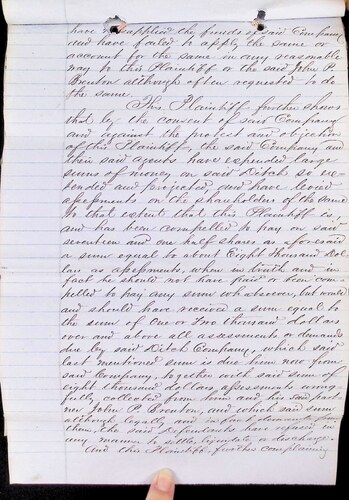 have misapplied the funds of said Company
and have failed to apply the same or
account for the same in any reasonable
way to this Plaintiff or the said John P.
Benton although often requested to do
the same.
This Plaintiff further shows
that by the consent of said Company
and against the protest and objection
of this Plaintiff, the said Company and
their said agents have expended large
sums of money on said Ditch so ex-
tended and projected, and have levied
assessments on the shareholders of the same
to that extent that this Plaintiff is,
and has been compelled to pay on said
seventeen and one half shares as aforesaid
a sum equal to about Eight thousand Dol-
lars as assessments, when in truth and in
fact he should not have paid or been com-
pelled to pay any sum whatsoever, but would
and should have received a sum equal to
the sum of One or Two thousand dollars
over and above all assessments or demands
due by said Ditch Company, which said
last mentioned sum is due them now from
said Company, together with said sum of
Eight thousand dollars, assessments wrong
fully collected from him and his said part
ner John P. Brenton, and which said sum
although legally and in fact
them, the said Defendants have refused in
any manner to settle, liquidate or discharge.
And this Plaintiff further complaining